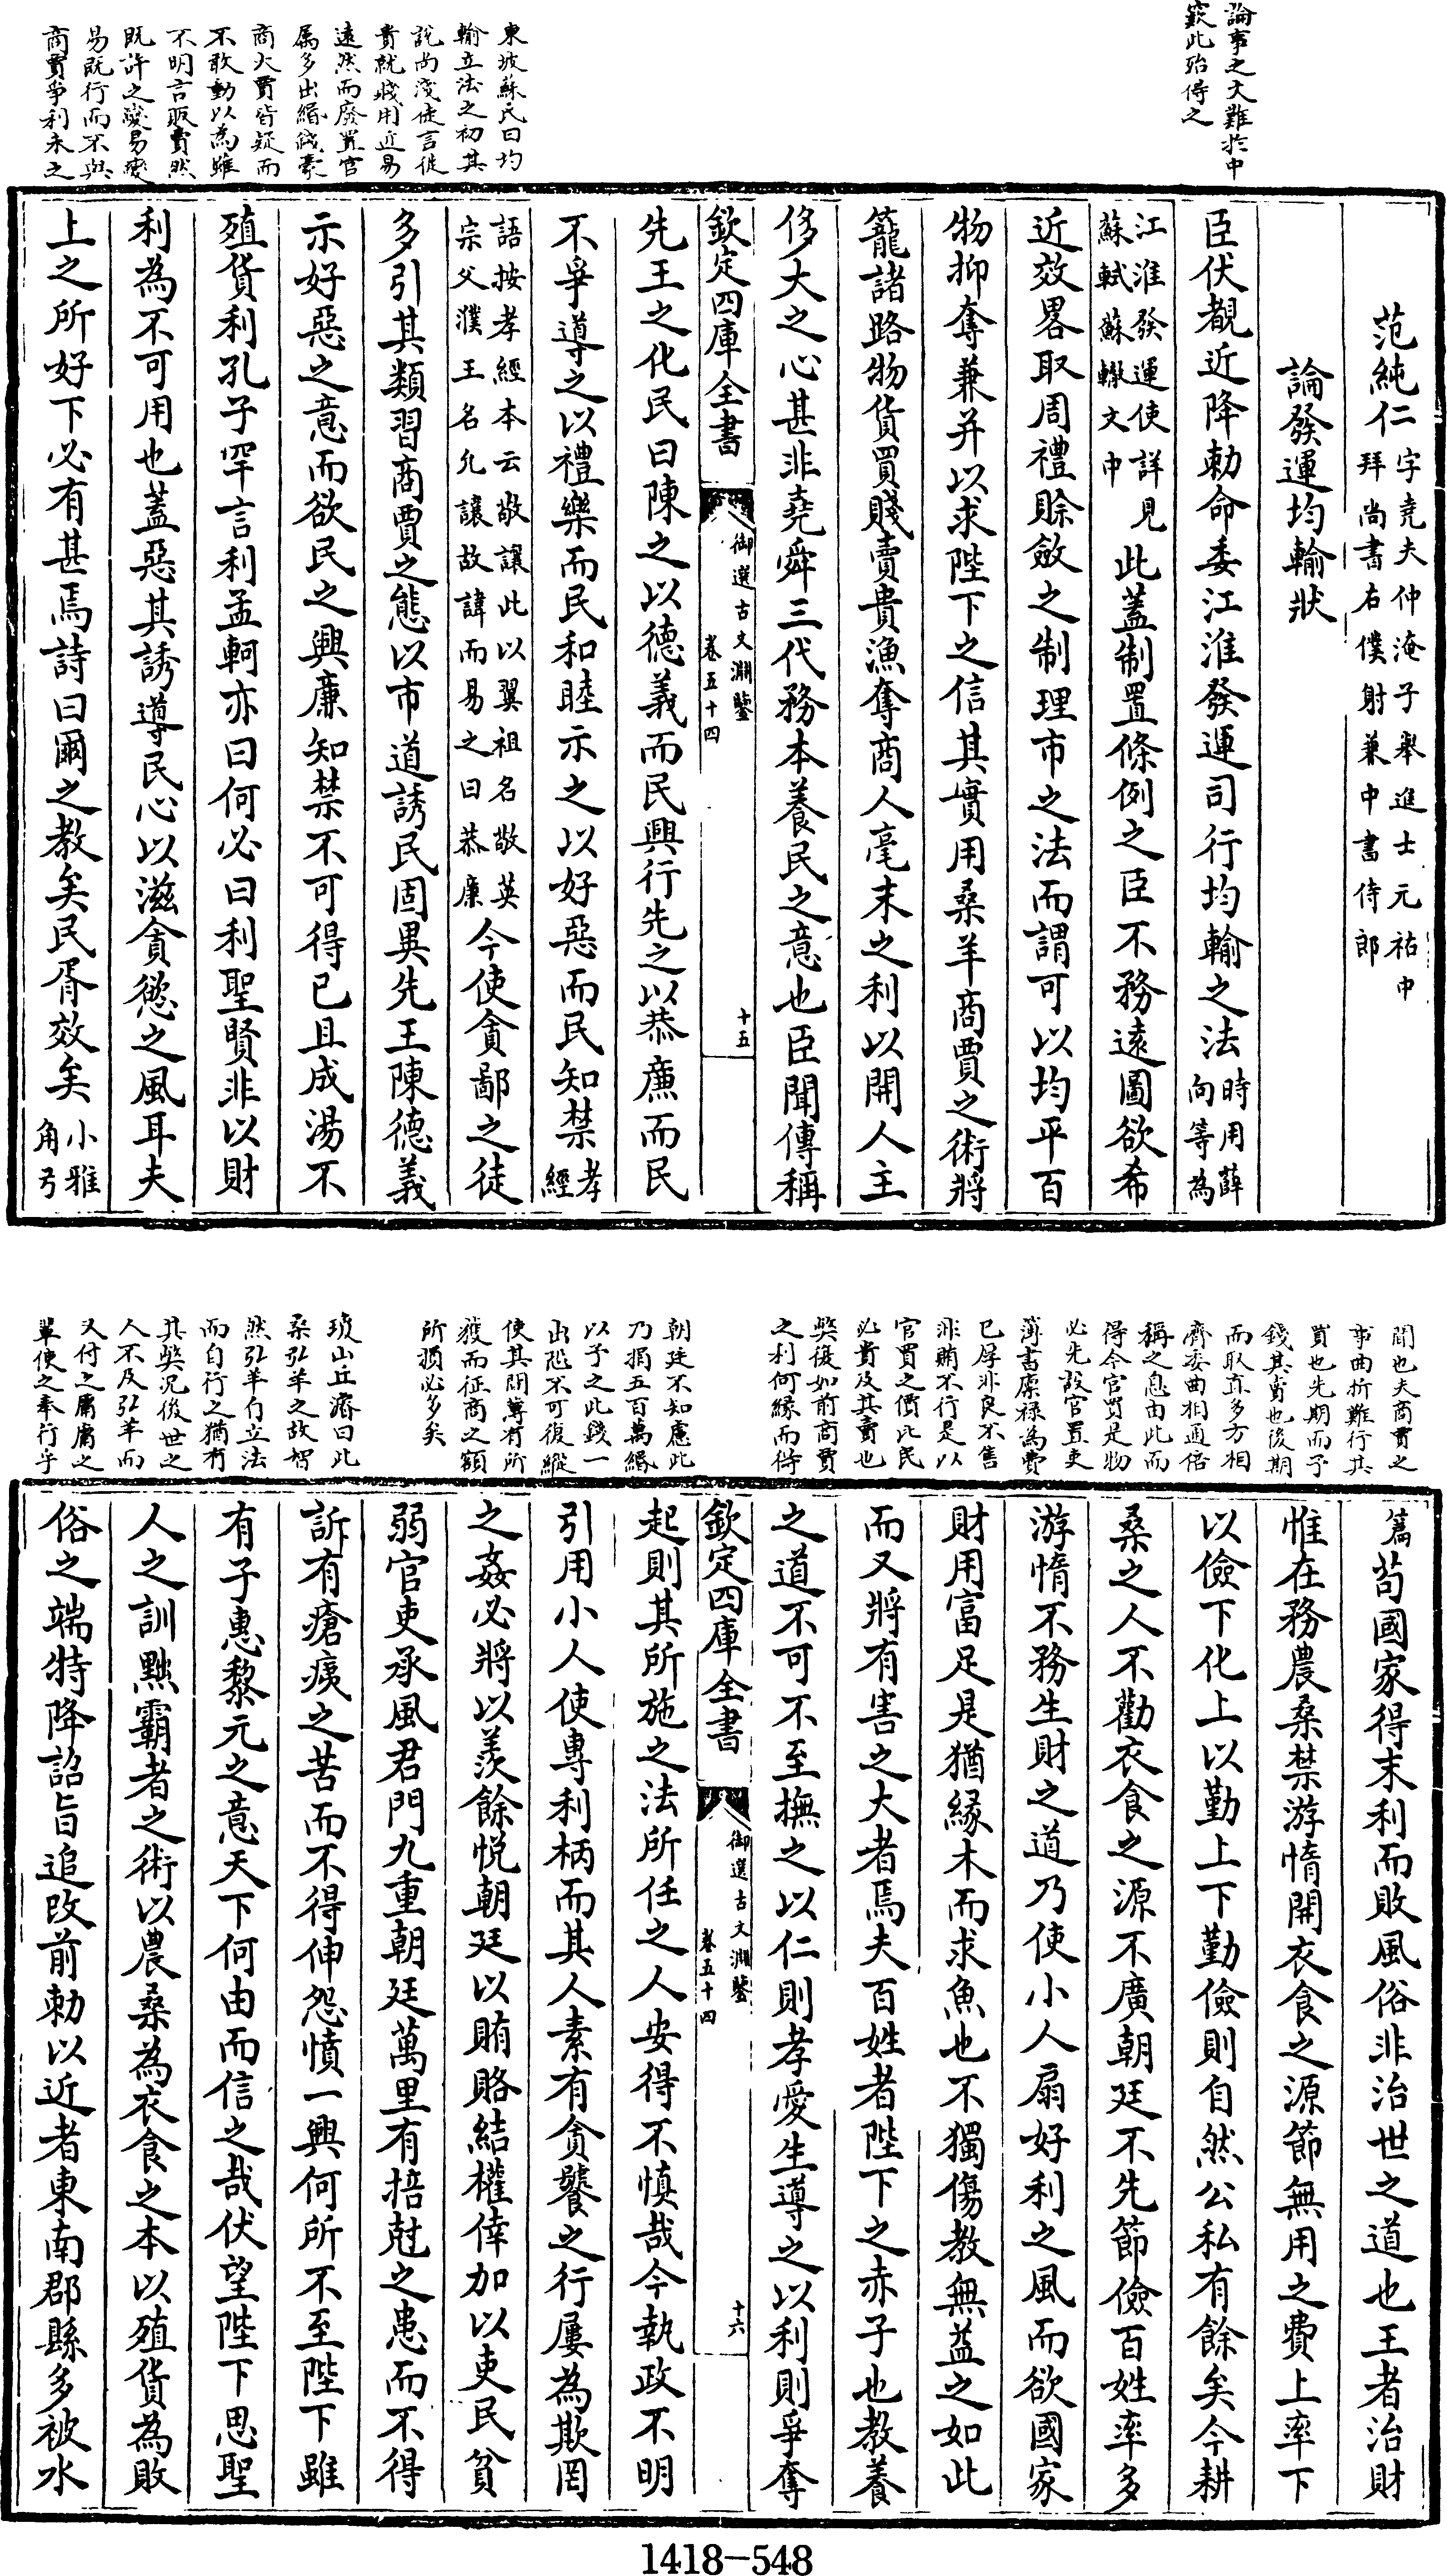 論事之文難於中
窾此殆得之
東坡蘇氏曰均
輸立法之初其
說尚淺徒言徙
貴就賤用近易
遠然而廢置官
屬多出緡錢豪
商大賈皆疑而
不敢動以為雖
不明言販賣然
既許之變易變
易既行而不與
商賈爭利未之
范純仁字堯夫仲淹子舉進士元祐中
拜尚書右僕射兼中書侍郎
論發運均輸狀
臣伏覩近降勅命委江淮發運司行均輸之法時用薛
向等為
江淮發運使詳見
蘇軾蘇轍文中此蓋制置條例之臣不務遠圖欲希
近效畧取周禮賒斂之制理市之法而謂可以均平百
物抑奪兼并以求陛下之信其實用桑羊商賈之術將
籠諸路物貨買賤賣貴漁奪商人毫末之利以開人主
侈大之心甚非堯舜三代務本養民之意也臣聞傳稱
欽定四庫全書
御選古文淵鑒
卷五十四
十五
先王之化民曰陳之以德義而民興行先之以恭廉而民
不爭導之以禮樂而民和睦示之以好惡而民知禁孝
經
語按孝經本云敬讓此以翼祖名敬英
宗父濮王名允讓故諱而易之曰恭廉今使貪鄙之徒
多引其類習商賈之態以市道誘民固異先王陳德義
示好惡之意而欲民之興廉知禁不可得已且成湯不
殖貨利孔子罕言利孟軻亦曰何必曰利聖賢非以財
利為不可用也蓋惡其誘導民心以滋貪慾之風耳夫
上之所好下必有甚焉詩曰爾之教矣民胥效矣小雅
角弓
聞也夫商賈之
事曲折難行其
買也先期而予
錢其賣也後期
而取直多方相
濟委曲相通倍
稱之息由此而
得今官買是物
必先設官置吏
薄書廩祿為費
已厚非良不售
非賄不行是以
官買之價比民
必貴及其賣也
獘復如前商賈
之利何緣而得
朝廷不知慮此
乃捐五百萬緡
以予之此錢一
出恐不可復縱
使其間薄有所
獲而征商之額
所損必多矣
瓊山丘濬曰此
桑弘羊之故智
然弘羊自立法
而自行之猶有
其獘况後世之
人不及弘羊而
又付之庸庸之
輩使之奉行乎
篇苟國家得末利而敗風俗非治世之道也王者治財
惟在務農桑禁游惰開衣食之源節無用之費上率下
以儉下化上以勤上下勤儉則自然公私有餘矣今耕
桑之人不勸衣食之源不廣朝廷不先節儉百姓率多
游惰不務生財之道乃使小人扇好利之風而欲國家
財用富足是猶緣木而求魚也不獨傷教無益之如此
而又將有害之大者焉夫百姓者陛下之赤子也教養
之道不可不至撫之以仁則孝愛生導之以利則爭奪
欽定四庫全書
御選古文淵鑒
卷五十四
十六
起則其所施之法所任之人安得不慎哉今執政不明
引用小人使專利柄而其人素有貪饕之行屢為欺罔
之姦必將以羨餘悅朝廷以賄賂結權倖加以吏民貧
弱官吏承風君門九重朝廷萬里有掊尅之患而不得
訴有瘡痍之苦而不得伸怨憤一興何所不至陛下雖
有子惠黎元之意天下何由而信之哉伏望陛下思聖
人之訓黜霸者之術以農桑為衣食之本以殖貨為敗
俗之端特降詔旨追改前勅以近者東南郡縣多被水
1418-548